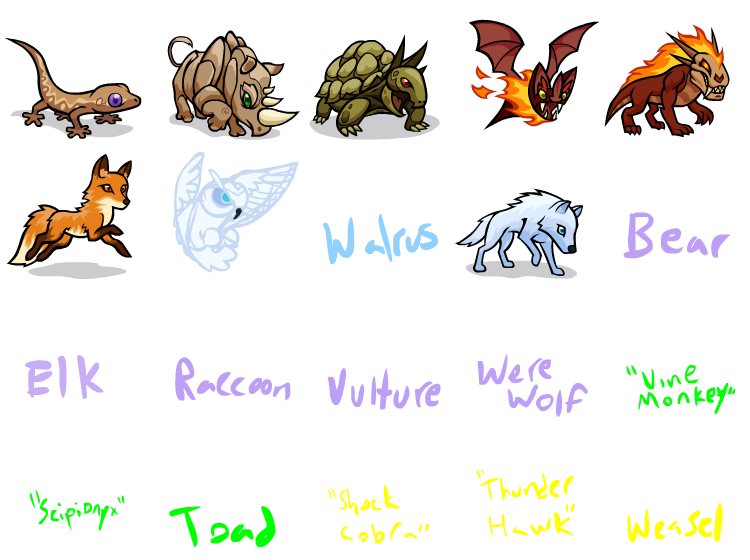 Walrus
Bear
Elk
Raccoon
Vulture
Were
Wolf
"Vine
Monkey"
"Scipionyx"
Toad
"Shock
Cobra"
"Thunder
Hawk"
Weasel